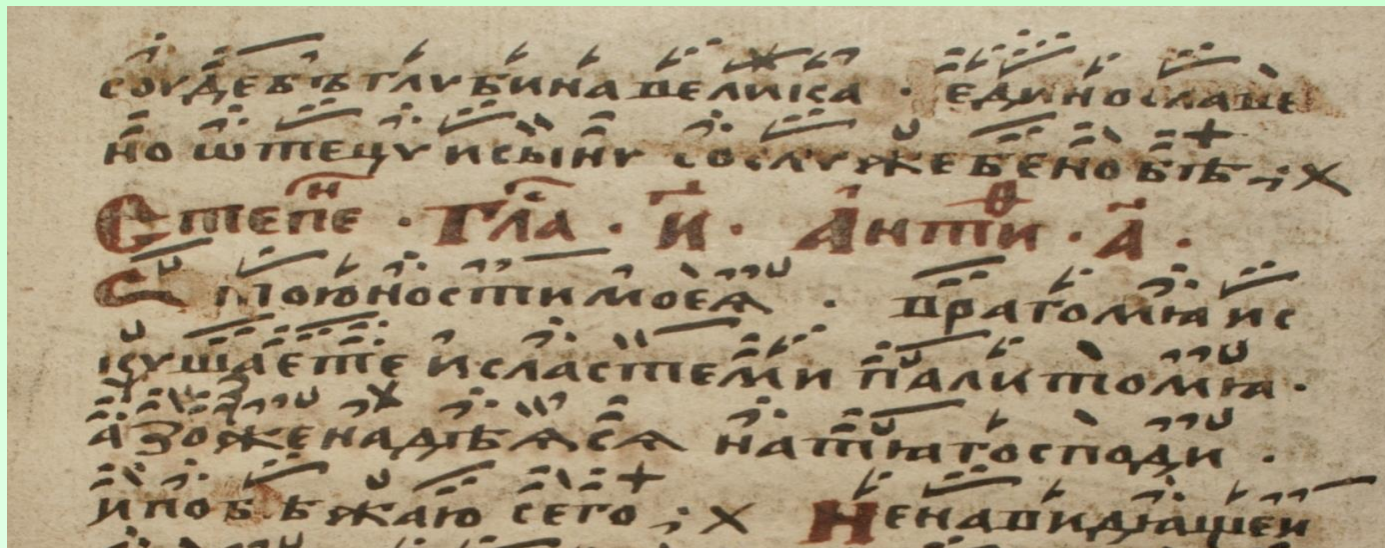 соудебѣ глубина велика · единославе
но ѿтецу исыну сослужебено бѣ :·
Степе н · Гла с · и · Анти в · а ·
Ѿ тоюности моея · врагомѧ ис
кушаете исластеми палитомѧ ·
азоже надѣѧся натѧ господи ·
ипобѣжаю сего :· Ненавидѧщеи